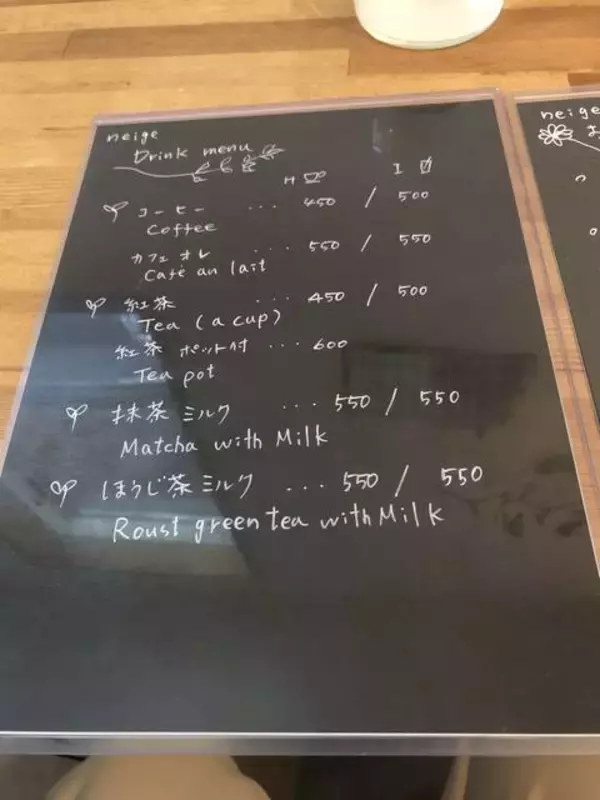 neige
Drink menu
H I
コーヒー ... 450 / 500
Coffee
カフェ オレ ... 550 / 550
Café au lait
紅茶 ... 450 / 500
Tea (a cup)
紅茶 ポット付 ... 600
Tea pot
抹茶 ミルク ... 550 / 550
Matcha with Milk
ほうじ茶 ミルク ... 550 / 550
Roust green tea with Milk
neige
お